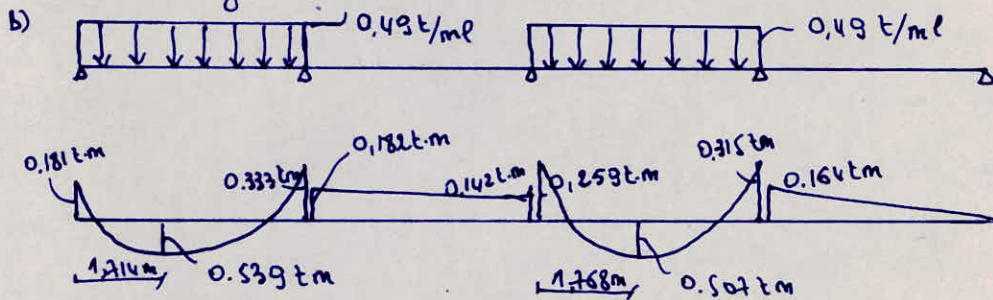 b)
0,49 t/ml
0,49 t/ml
0,181 t.m
0.333 tm
0,182 t.m
0,142 t.m
0,259 t.m
0.315 t.m
0.164 tm
1,714m
0.539 tm
1,768m
0.507 tm